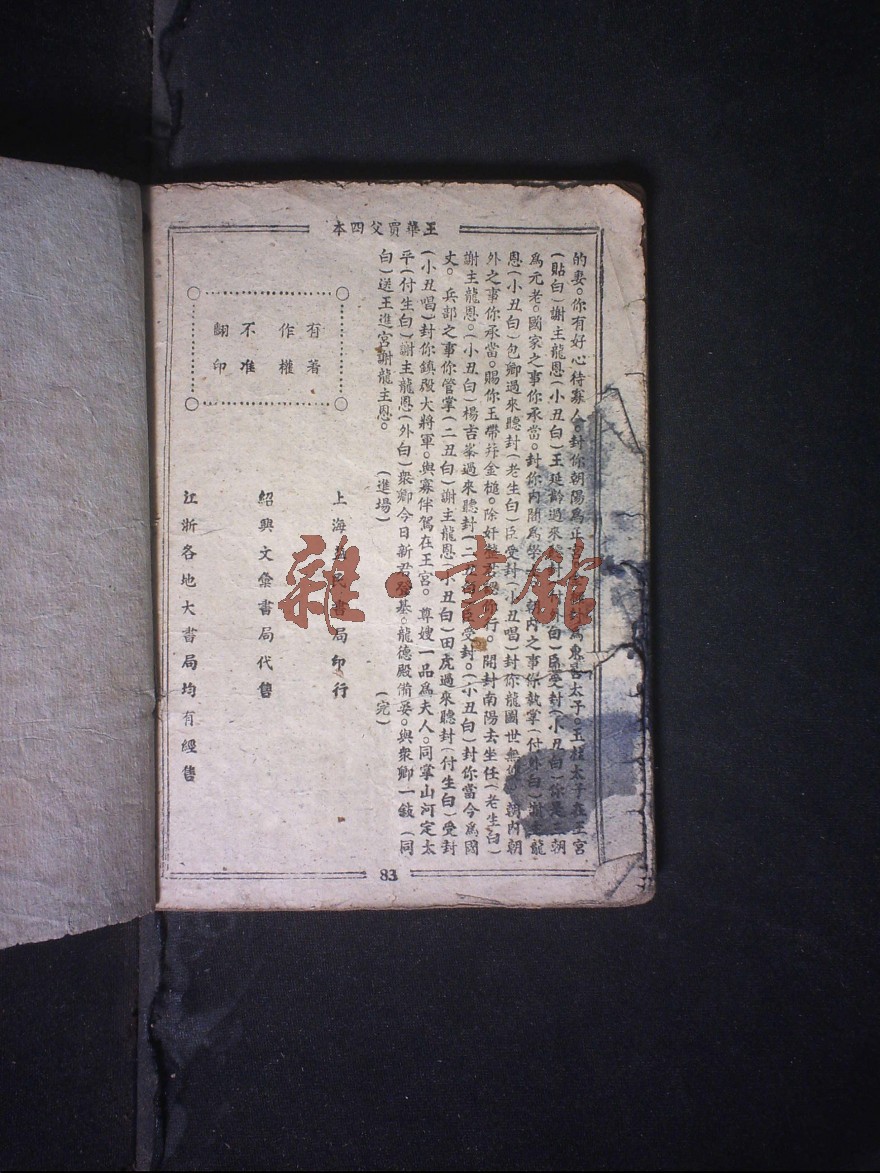 王華買父四本
的妻。你有好心待寡人。封你朝陽為正為鬼害太子。玉柱太子在王宮
(貼白)謝主龍恩(小丑白)王延齡過來聽封(外白)臣受封(小丑白)你是三朝
為元老。國家之事你承當。封你內閣為學朝內之事你執掌(付外白)謝主龍
恩(小丑白)包卿過來聽封(老生白)臣受封(小丑唱)封你龍圖世無朝內朝
外之事你承當。賜你玉帶并金槌。除奸你行。開封南陽去坐任(老生白)
謝主龍恩。(小丑白)楊吉峯過來聽封(二丑白)臣受封。(小丑白)封你當今為國
丈。兵部之事你管掌(二丑白)謝主龍恩(小丑白)田虎過來聽封(付生白)受封
(小丑唱)封你鎮殿大將軍。與寡伴駕在王宮。尊嫂一品為夫人。同掌山河定太
平(付生白)謝主龍恩(外白)衆卿今日新君登基。龍德殿備宴。與衆卿一敍(同
白)送王進宮謝龍主恩。(進場)(完)
有著
作權
不准
翻印
上海益民書局印行
紹興文彙書局代售
江浙各地大書局均有經售
83
雜·書館